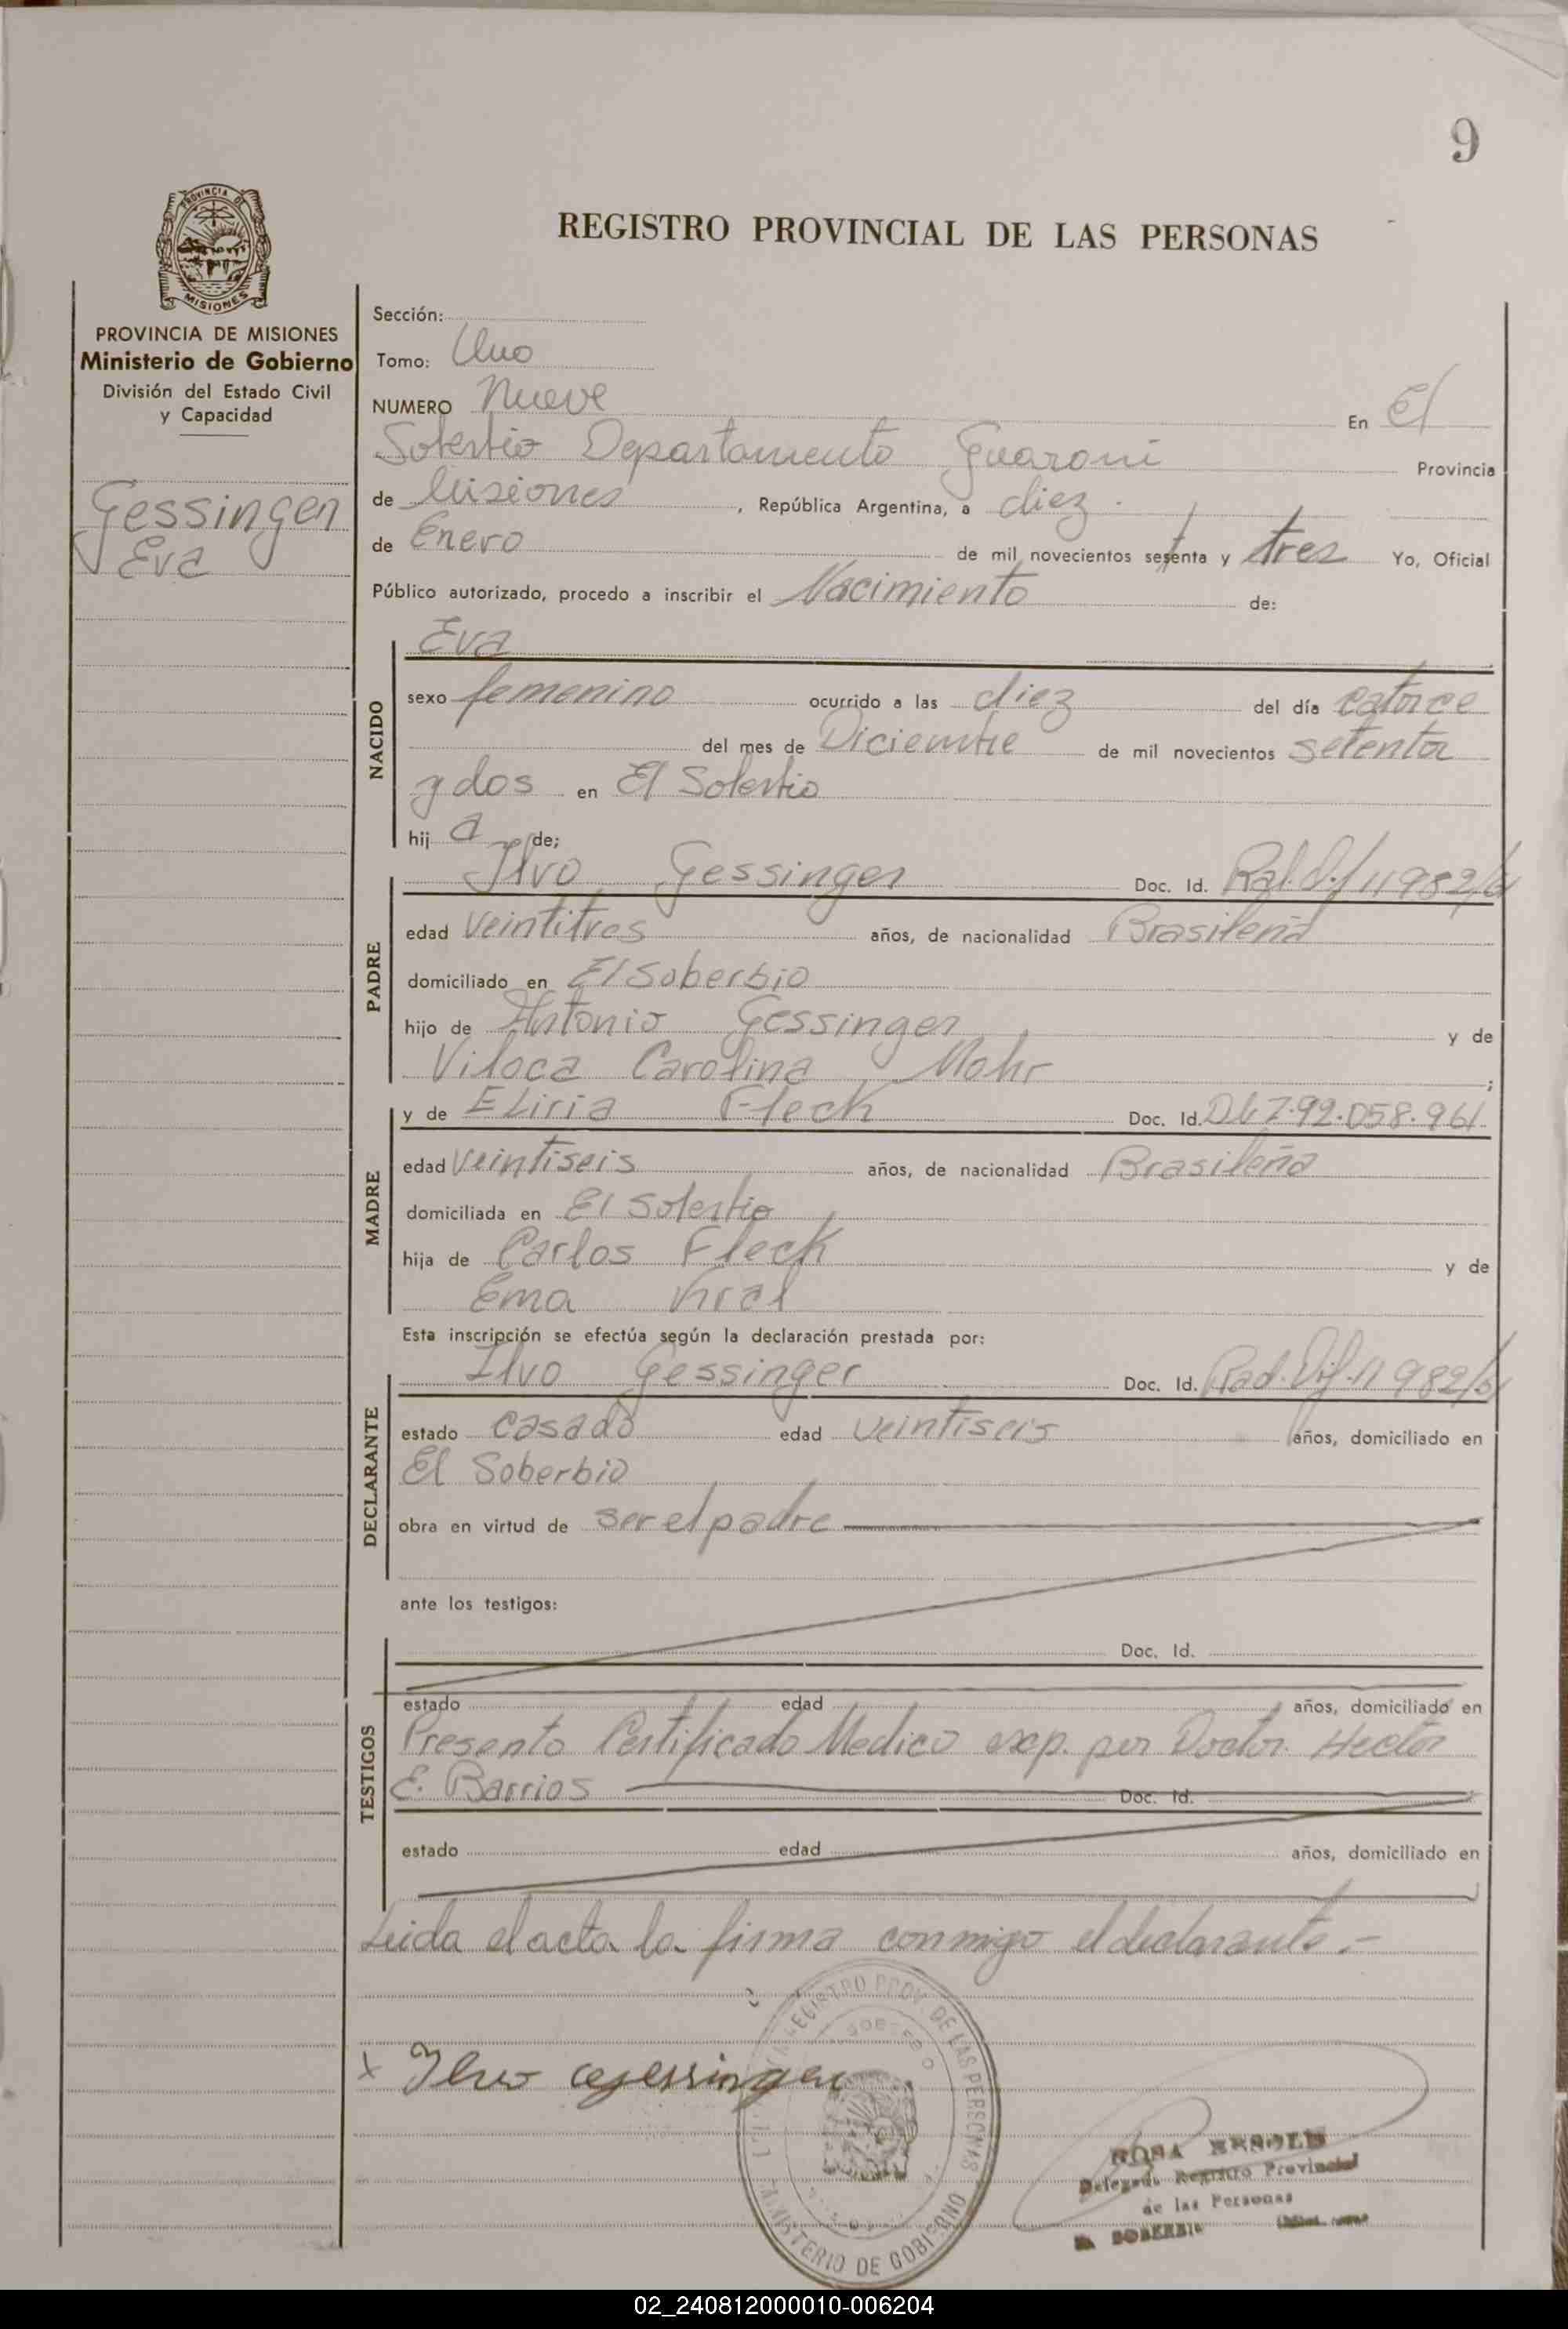 9
PROVINCIA DE
MISIONES
REGISTRO PROVINCIAL DE LAS PERSONAS
PROVINCIA DE MISIONES
Ministerio de Gobierno
División del Estado Civil
y Capacidad
Gessinger
Eva
Sección:
Tomo: Uno
NUMERO Nueve En El
Soberbio Departamento Guarani Provincia
de Misiones, República Argentina, a diez
de Enero de mil novecientos setenta y tres Yo, Oficial
Público autorizado, procedo a inscribir el Nacimiento de:
NACIDO
Eva
sexo femenino ocurrido a las diez del día catorce
del mes de Diciembre de mil novecientos setenta
y dos en El Soberbio
hij a de;
PADRE
Ilvo Gessinger Doc. Id. 11982/6
edad veintitres años, de nacionalidad Brasileña
domiciliado en El Soberbio
hijo de Antonio Gessinger y de
Viloca Carolina Mohr ;
MADRE
y de Eliria Fleck Doc. Id. 92.058.961
edad veintiseis años, de nacionalidad Brasileña
domiciliada en El Soberbio
hija de Carlos Fleck y de
Ema Kral
Esta inscripción se efectúa según la declaración prestada por:
DECLARANTE
Ilvo Gessinger Doc. Id. Rad. Dif. 11982/6
estado casado edad veintiseis años, domiciliado en
El Soberbio
obra en virtud de ser el padre
ante los testigos:
TESTIGOS
Doc. Id.
estado edad años, domiciliado en
Presento Certificado Medico exp. por Doctor Hector
E. Barrios Doc. Id.
estado edad años, domiciliado en
Leida el acta la firma conmigo el declarante.-
REGISTRO PROV. DE LAS PERSONAS
MINISTERIO DE GOBIERNO
x Ilvo Gessinger
ROSA
Delegada Registro Provincial
de las Personas
EL SOBERBIO
02_240812000010-006204